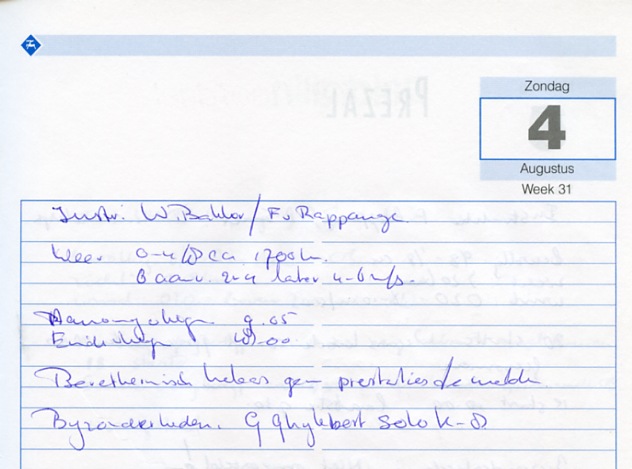 Zondag
4
Augustus
Week 31
Instr. W. Bakker / F. v Rappange
Weer 0-4/8 ca 1700 h.
Baan. 2-4 later 4-6 m/s.
Aanvang vliegen. 9.05
Einde vliegen
Beroethemisch helaas geen prestaties te melden
Byzonderheden. G Ghylebert Solo K-8